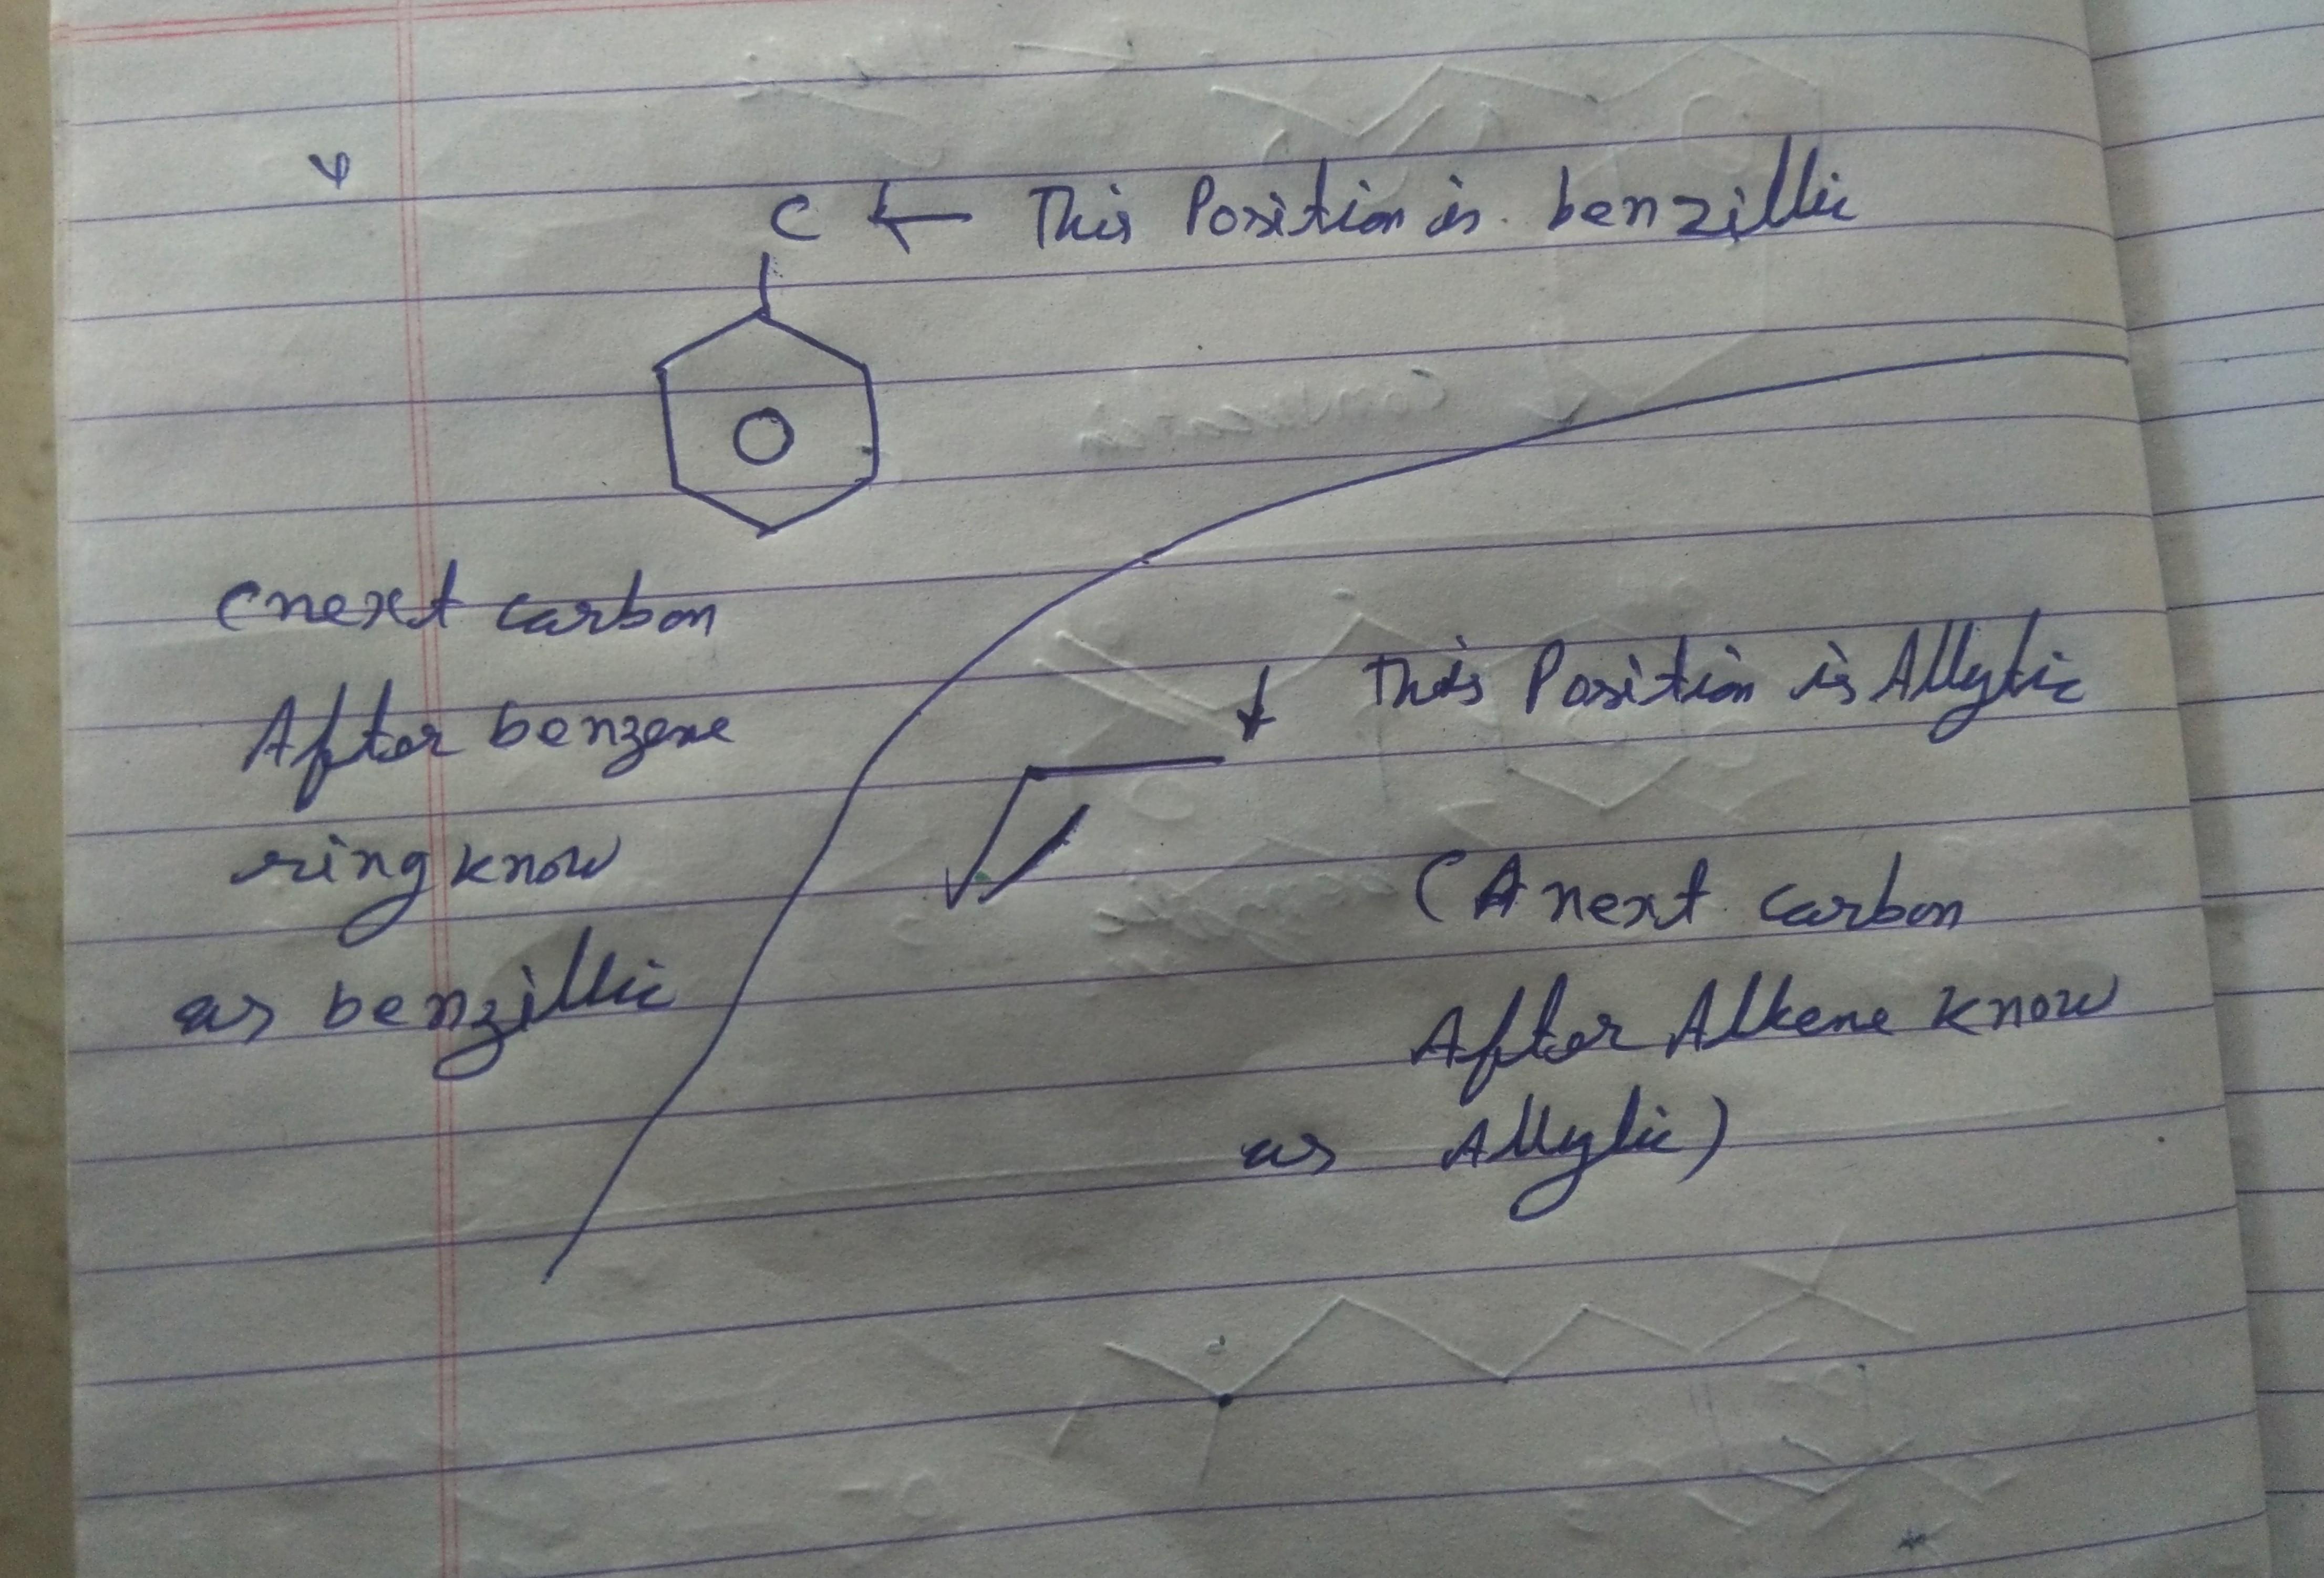 C ← This Position is benzillic
(next carbon
After benzene
ring know
as benzillic
This Position is Allylic
(A next carbon
After Alkene know
as Allylic)